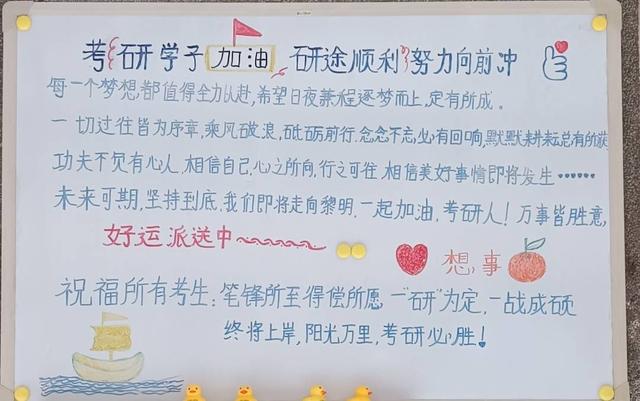 考研学子加油 研途顺利 努力向前冲
每一个梦想,都值得全力以赴,希望日夜兼程逐梦而上,定有所成。
一切过往皆为序章,乘风破浪,砥砺前行,念念不忘,必有回响,默默耕耘总有所获
功夫不欠有心人,相信自己,心之所向,行之可往,相信美好事情即将发生……
未来可期,坚持到底,我们即将走向黎明,一起加油,考研人!万事皆胜意,
好运派送中~~~~~~
想,事
祝福所有考生:笔锋所至得偿所愿,一"研"为定,一战成硕
终将上岸,阳光万里,考研必胜!